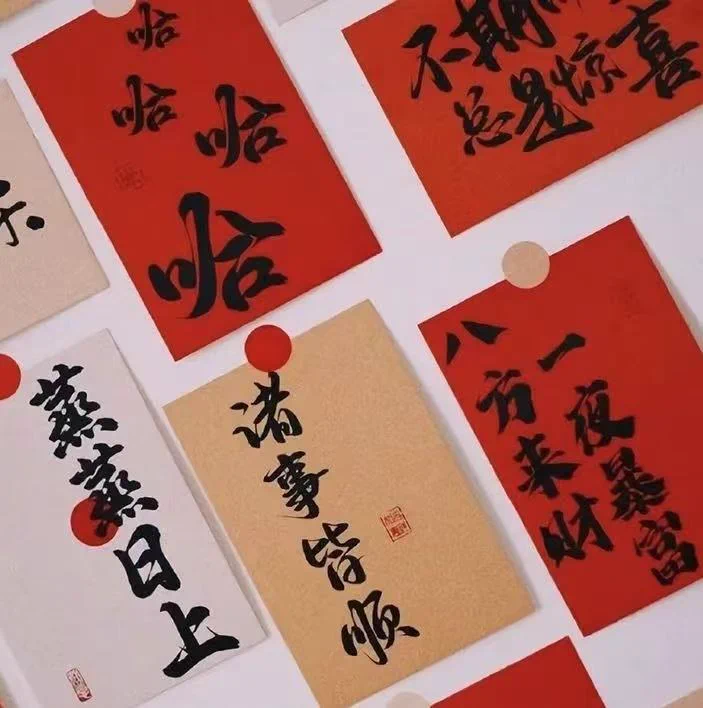 哈
哈
哈
哈
不期
总是惊喜
乐
蒸蒸日上
诸事皆顺
一夜暴富
八方来财